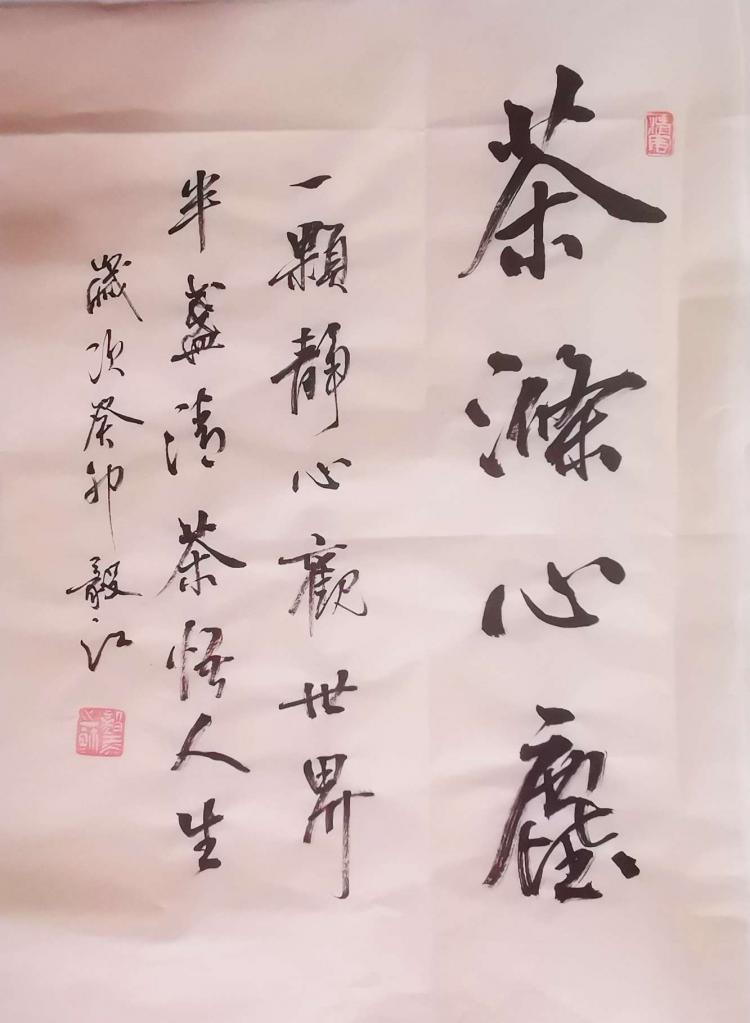 茶滌心塵
一顆靜心觀世界
半盞清茶悟人生
歲次癸卯 毅江